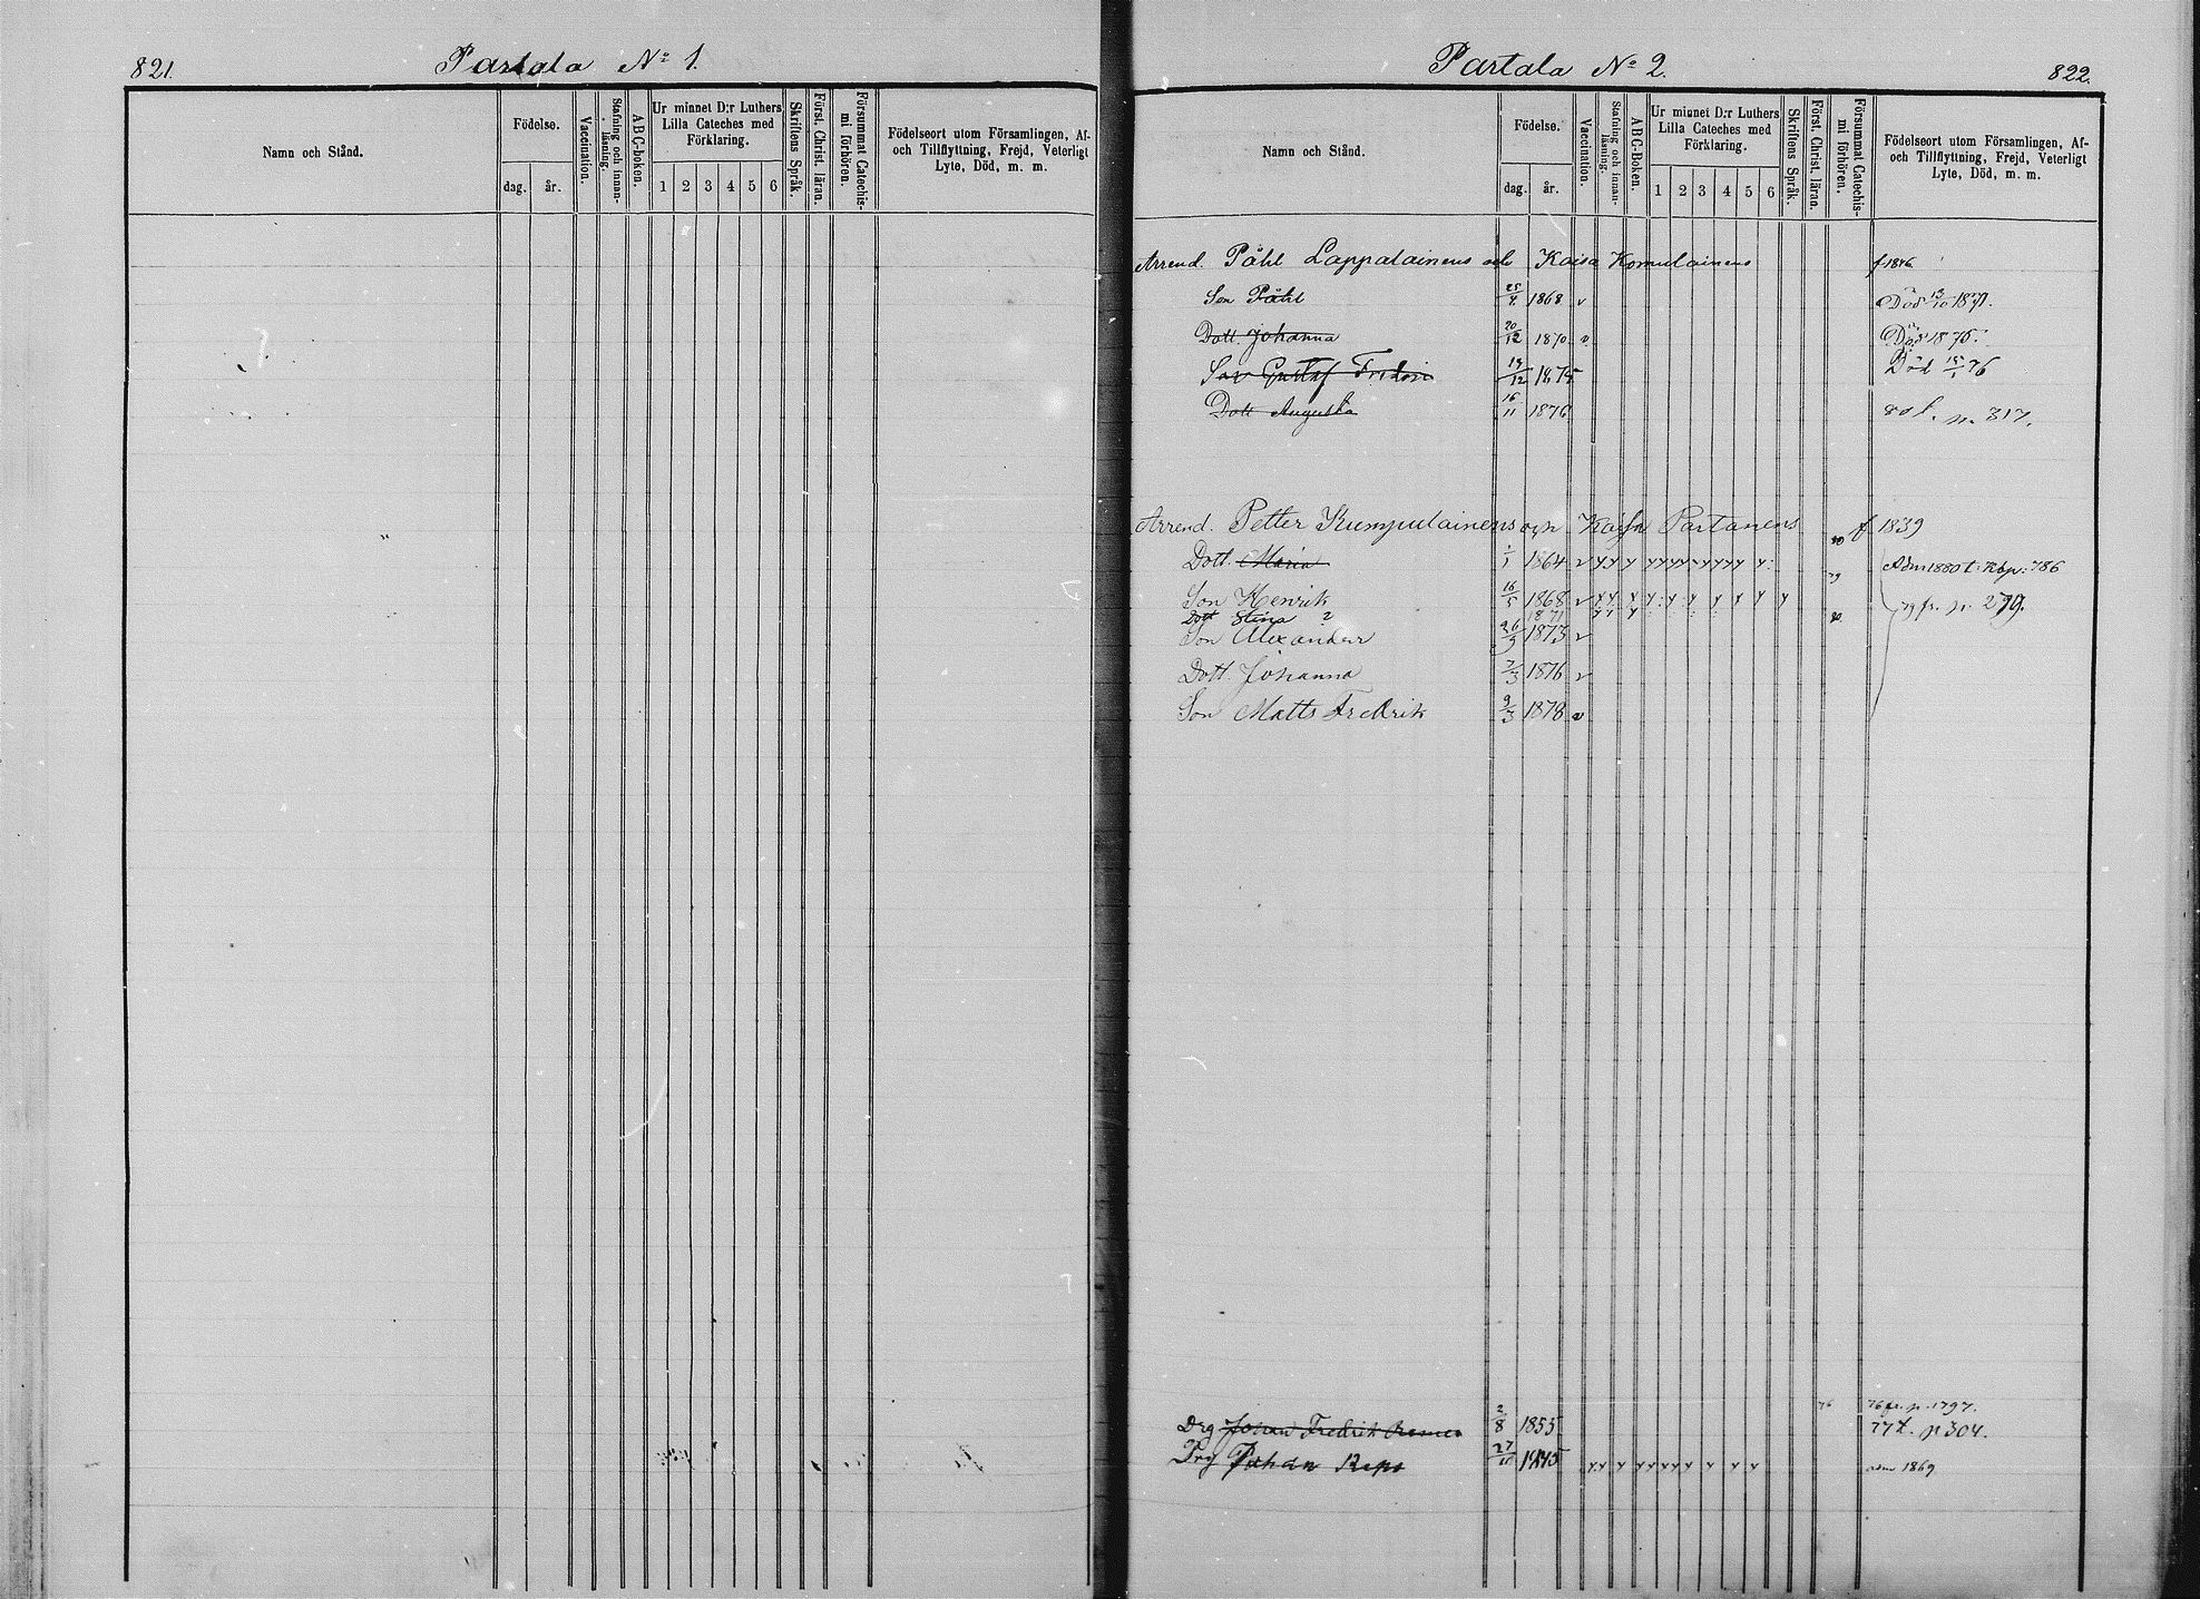 821.
Partala No 1.
Namn och Stånd.
Födelse.
dag.
år.
Vaccination.
Stafning och innan-
läsning.
ABC-boken.
Ur minnet D:r Luthers
Lilla Cateches med
Förklaring.
1 2 3 4 5 6
Skriftens Språk.
Först. Christ. läran.
Försummat Catechis-
mi förhören.
Födelseort utom Församlingen, Af-
och Tillflyttning, Frejd, Veterligt
Lyte, Död, m. m.
Partala No 2.
822.
Namn och Stånd.
Födelse.
dag.
år.
Vaccination.
Stafning och innan-
läsning.
ABC-Boken.
Ur minnet D:r Luthers
Lilla Cateches med
Förklaring.
1 2 3 4 5 6
Skriftens Språk.
Först. Christ. läran.
Försummat Catechis-
mi förhören.
Födelseort utom Församlingen, Af-
och Tillflyttning, Frejd, Veterligt
Lyte, Död, m. m.
Arrend. Påhl Lappalainens och Kaisa Komulainens f. 1846.
Son Påhl 25/4 1868 v Död 13/10 1871.
Dott. Johanna 20/12 1870 v Död 1875.
Son Gustaf Fredrik 14/12 1875 Död 15/1 76
Dott Augusta 16/11 1876 p. 317.
Arrend. Petter Kumpulainens och Kaisa Partanens 80 f 1839
Dott. Maria 1/1 1864 v Adm 1880 t. Kbp: 786
Son Henrik 16/5 1868 v 79 79 fr. p. 279.
Dott Stina ? 1871 80.
Son Alexander 26/3 1873 v
Dott. Johanna 7/3 1876 v
Son Matts Fredrik 9/3 1878 v
76 76 fr. p. 1797.
Drg Johan Fredrik 2/8 1855 77 t. p 304.
Drg Johan Repo 27/11 1845 adm 1869